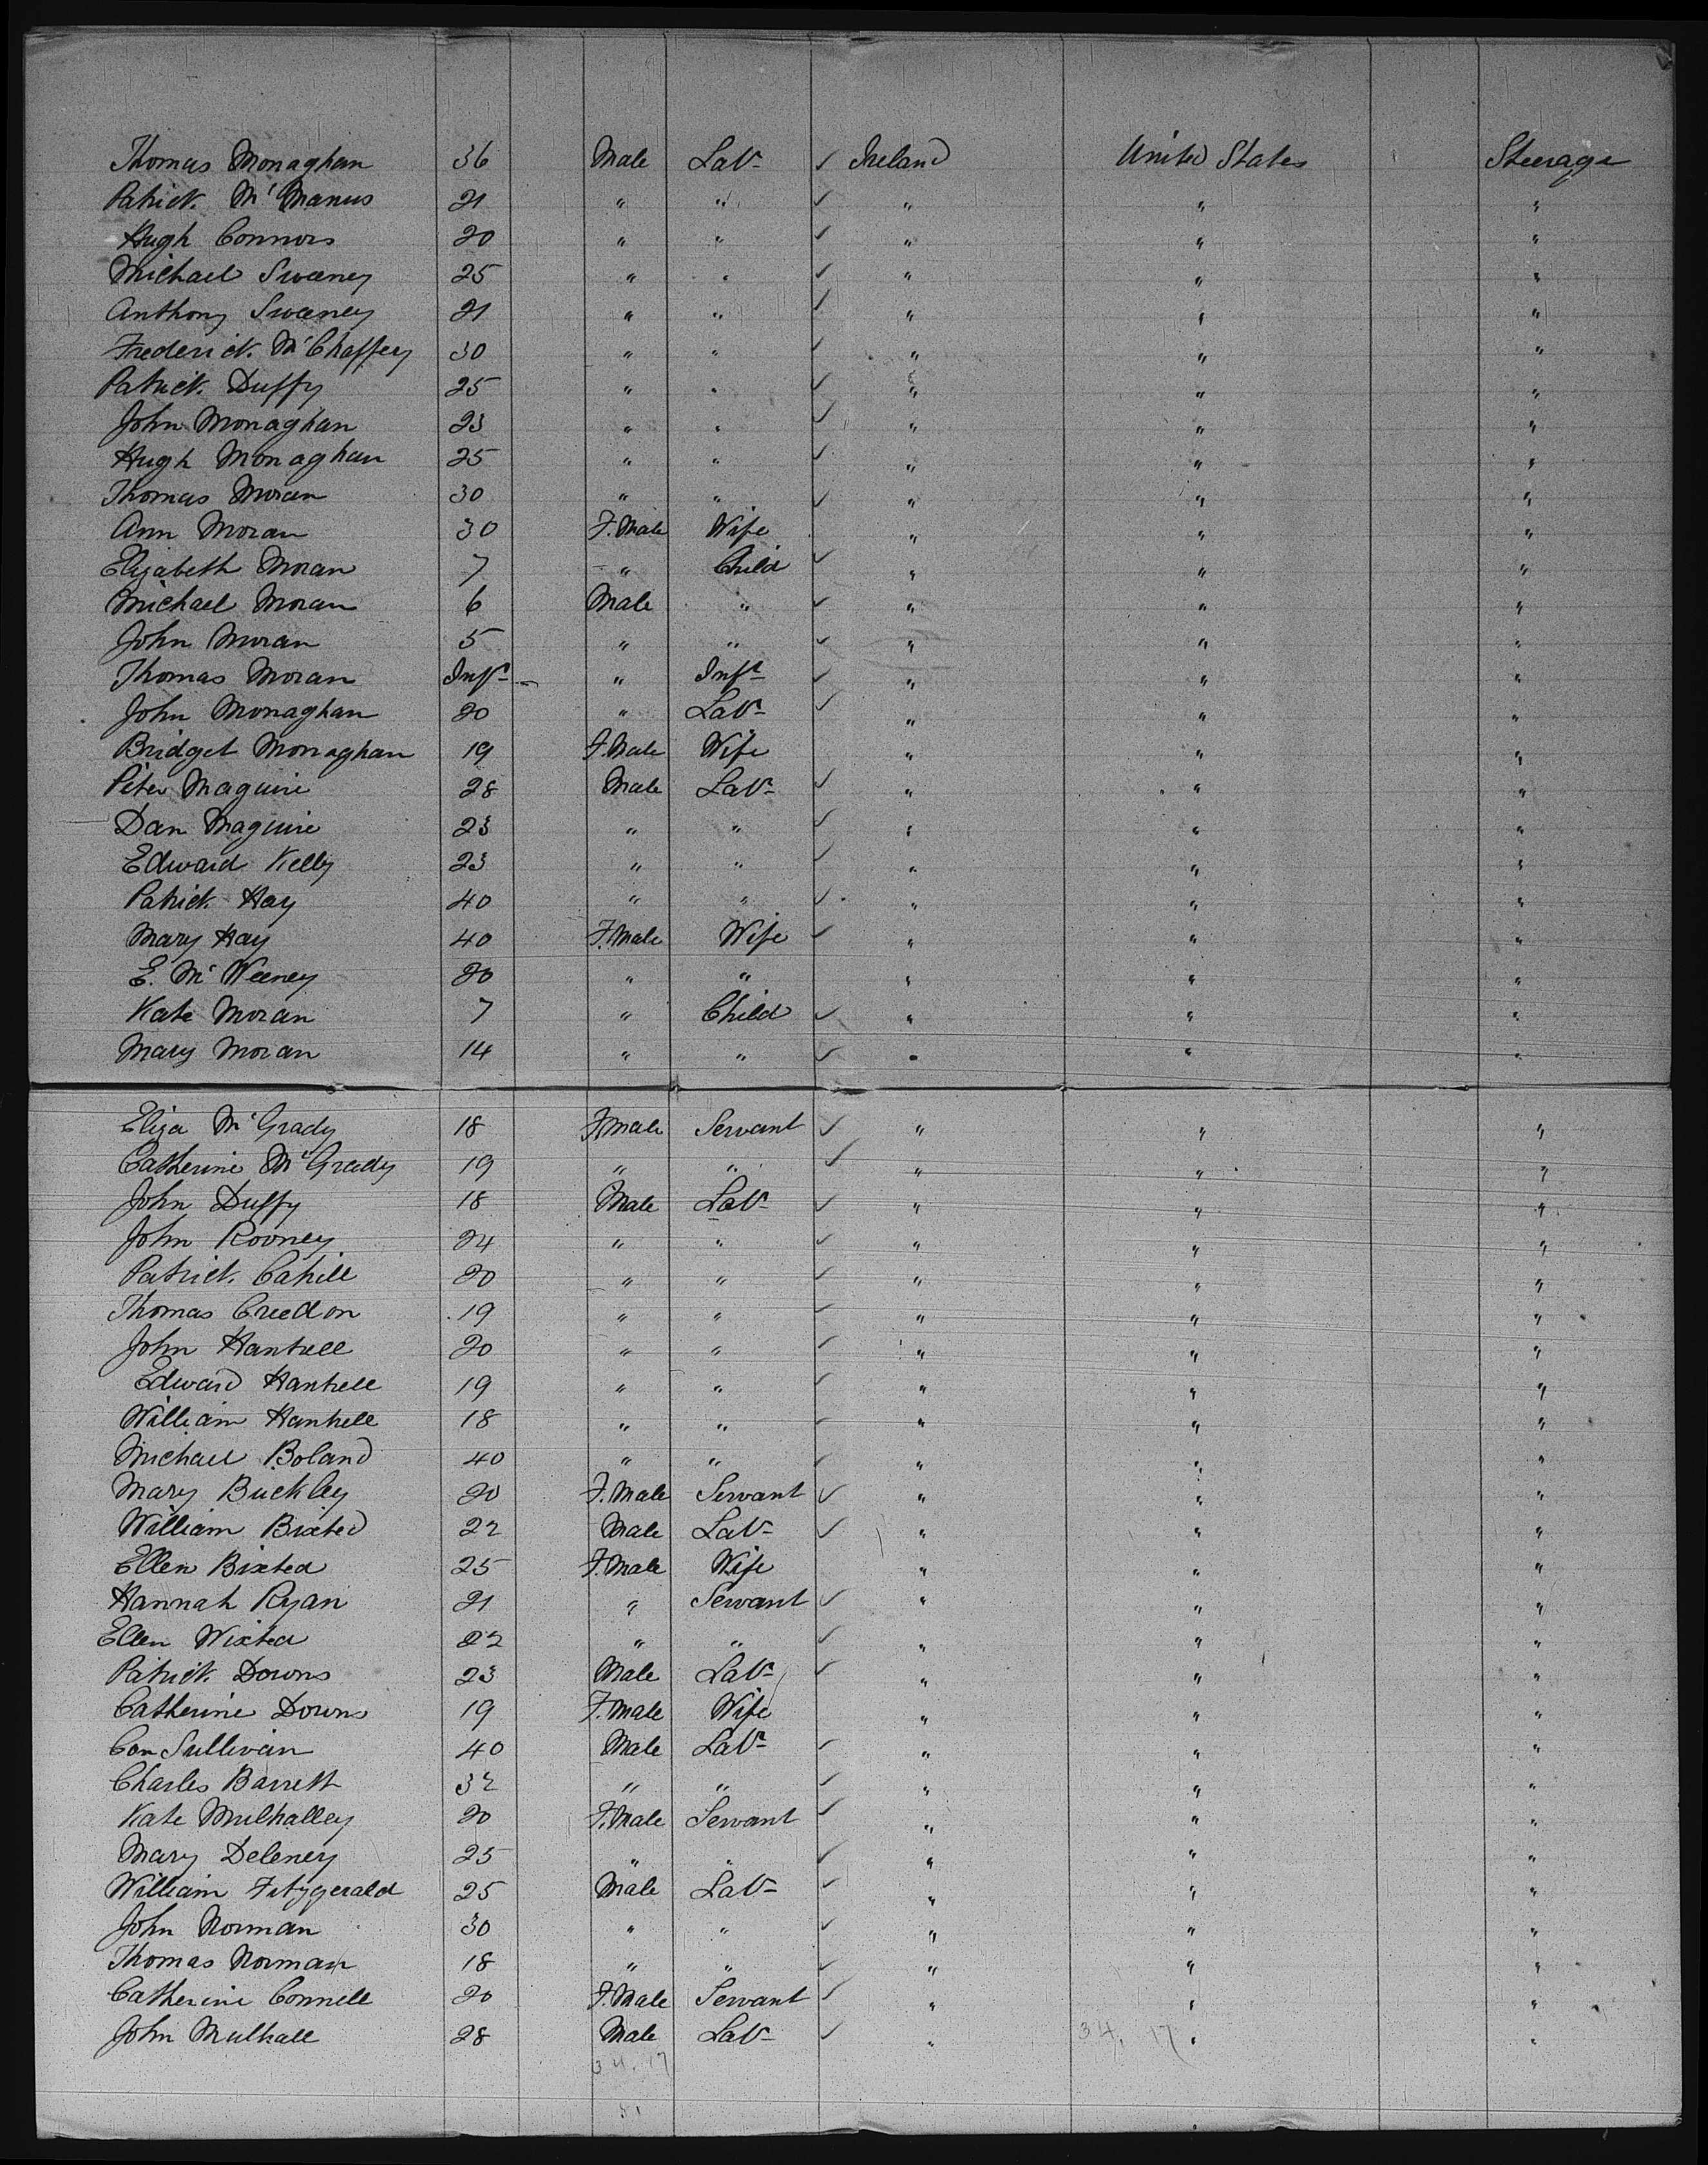 Thomas Monaghan 36 Male Labr ✓ Ireland United States Steerage
Patrick McManus 21 " " ✓ " " "
Hugh Connors 20 " " ✓ " " "
Michael Sweeney 25 " " ✓ " " "
Anthony Sweeney 21 " " ✓ " " "
Frederick McChaffery 30 " " ✓ " " "
Patrick Duffy 25 " " ✓ " " "
John Monaghan 23 " " ✓ " " "
Hugh Monaghan 25 " " ✓ " " "
Thomas Moran 30 " " ✓ " " "
Ann Moran 30 F.Male Wife " " "
Elizabeth Moran 7 " Child ✓ " " "
Michael Moran 6 Male " ✓ " " "
John Moran 5 " " ✓ " " "
Thomas Moran Inft " Inft ✓ " " "
John Monaghan 20 " Labr ✓ " " "
Bridget Monaghan 19 F.Male Wife " " "
Peter Maguire 28 Male Labr ✓ " " "
Dan Maguire 23 " " ✓ " " "
Edward Kelly 23 " " ✓ " " "
Patrick Hay 40 " " ✓ " " "
Mary Hay 40 F.Male Wife ✓ " " "
E. McWeeney 20 " " " " "
Kate Moran 7 " Child ✓ " " "
Mary Moran 14 " " ✓ " " "
Eliza McGrady 18 F.Male Servant ✓ " " "
Catherine McGrady 19 " " ✓ " " "
John Duffy 18 Male Labr ✓ " " "
John Rooney 24 " " ✓ " " "
Patrick Cahill 20 " " ✓ " " "
Thomas Creedon 19 " " ✓ " " "
John Hantrell 20 " " ✓ " " "
Edward Hantrell 19 " " ✓ " " "
William Hantrell 18 " " ✓ " " "
Michael Boland 40 " " ✓ " " "
Mary Buckley 20 F.Male Servant ✓ " " "
William Bixted 22 Male Labr ✓ " " "
Ellen Bixted 25 F.Male Wife " " "
Hannah Ryan 21 " Servant ✓ " " "
Ellen Wixted 22 " " ✓ " " "
Patrick Downs 23 Male Labr ✓ " " "
Catherine Downs 19 F.Male Wife " " "
Con Sullivan 40 Male Labr ✓ " " "
Charles Barrett 32 " " ✓ " " "
Kate Mulhalley 20 F.Male Servant ✓ " " "
Mary Deleney 25 " " ✓ " " "
William Fitzgerald 25 Male Labr ✓ " " "
John Norman 30 " " ✓ " " "
Thomas Norman 18 " " ✓ " " "
Catherine Connell 20 F.Male Servant ✓ " " "
John Mulhall 28 Male Labr ✓ " 34. 17 " "
34. 17
51